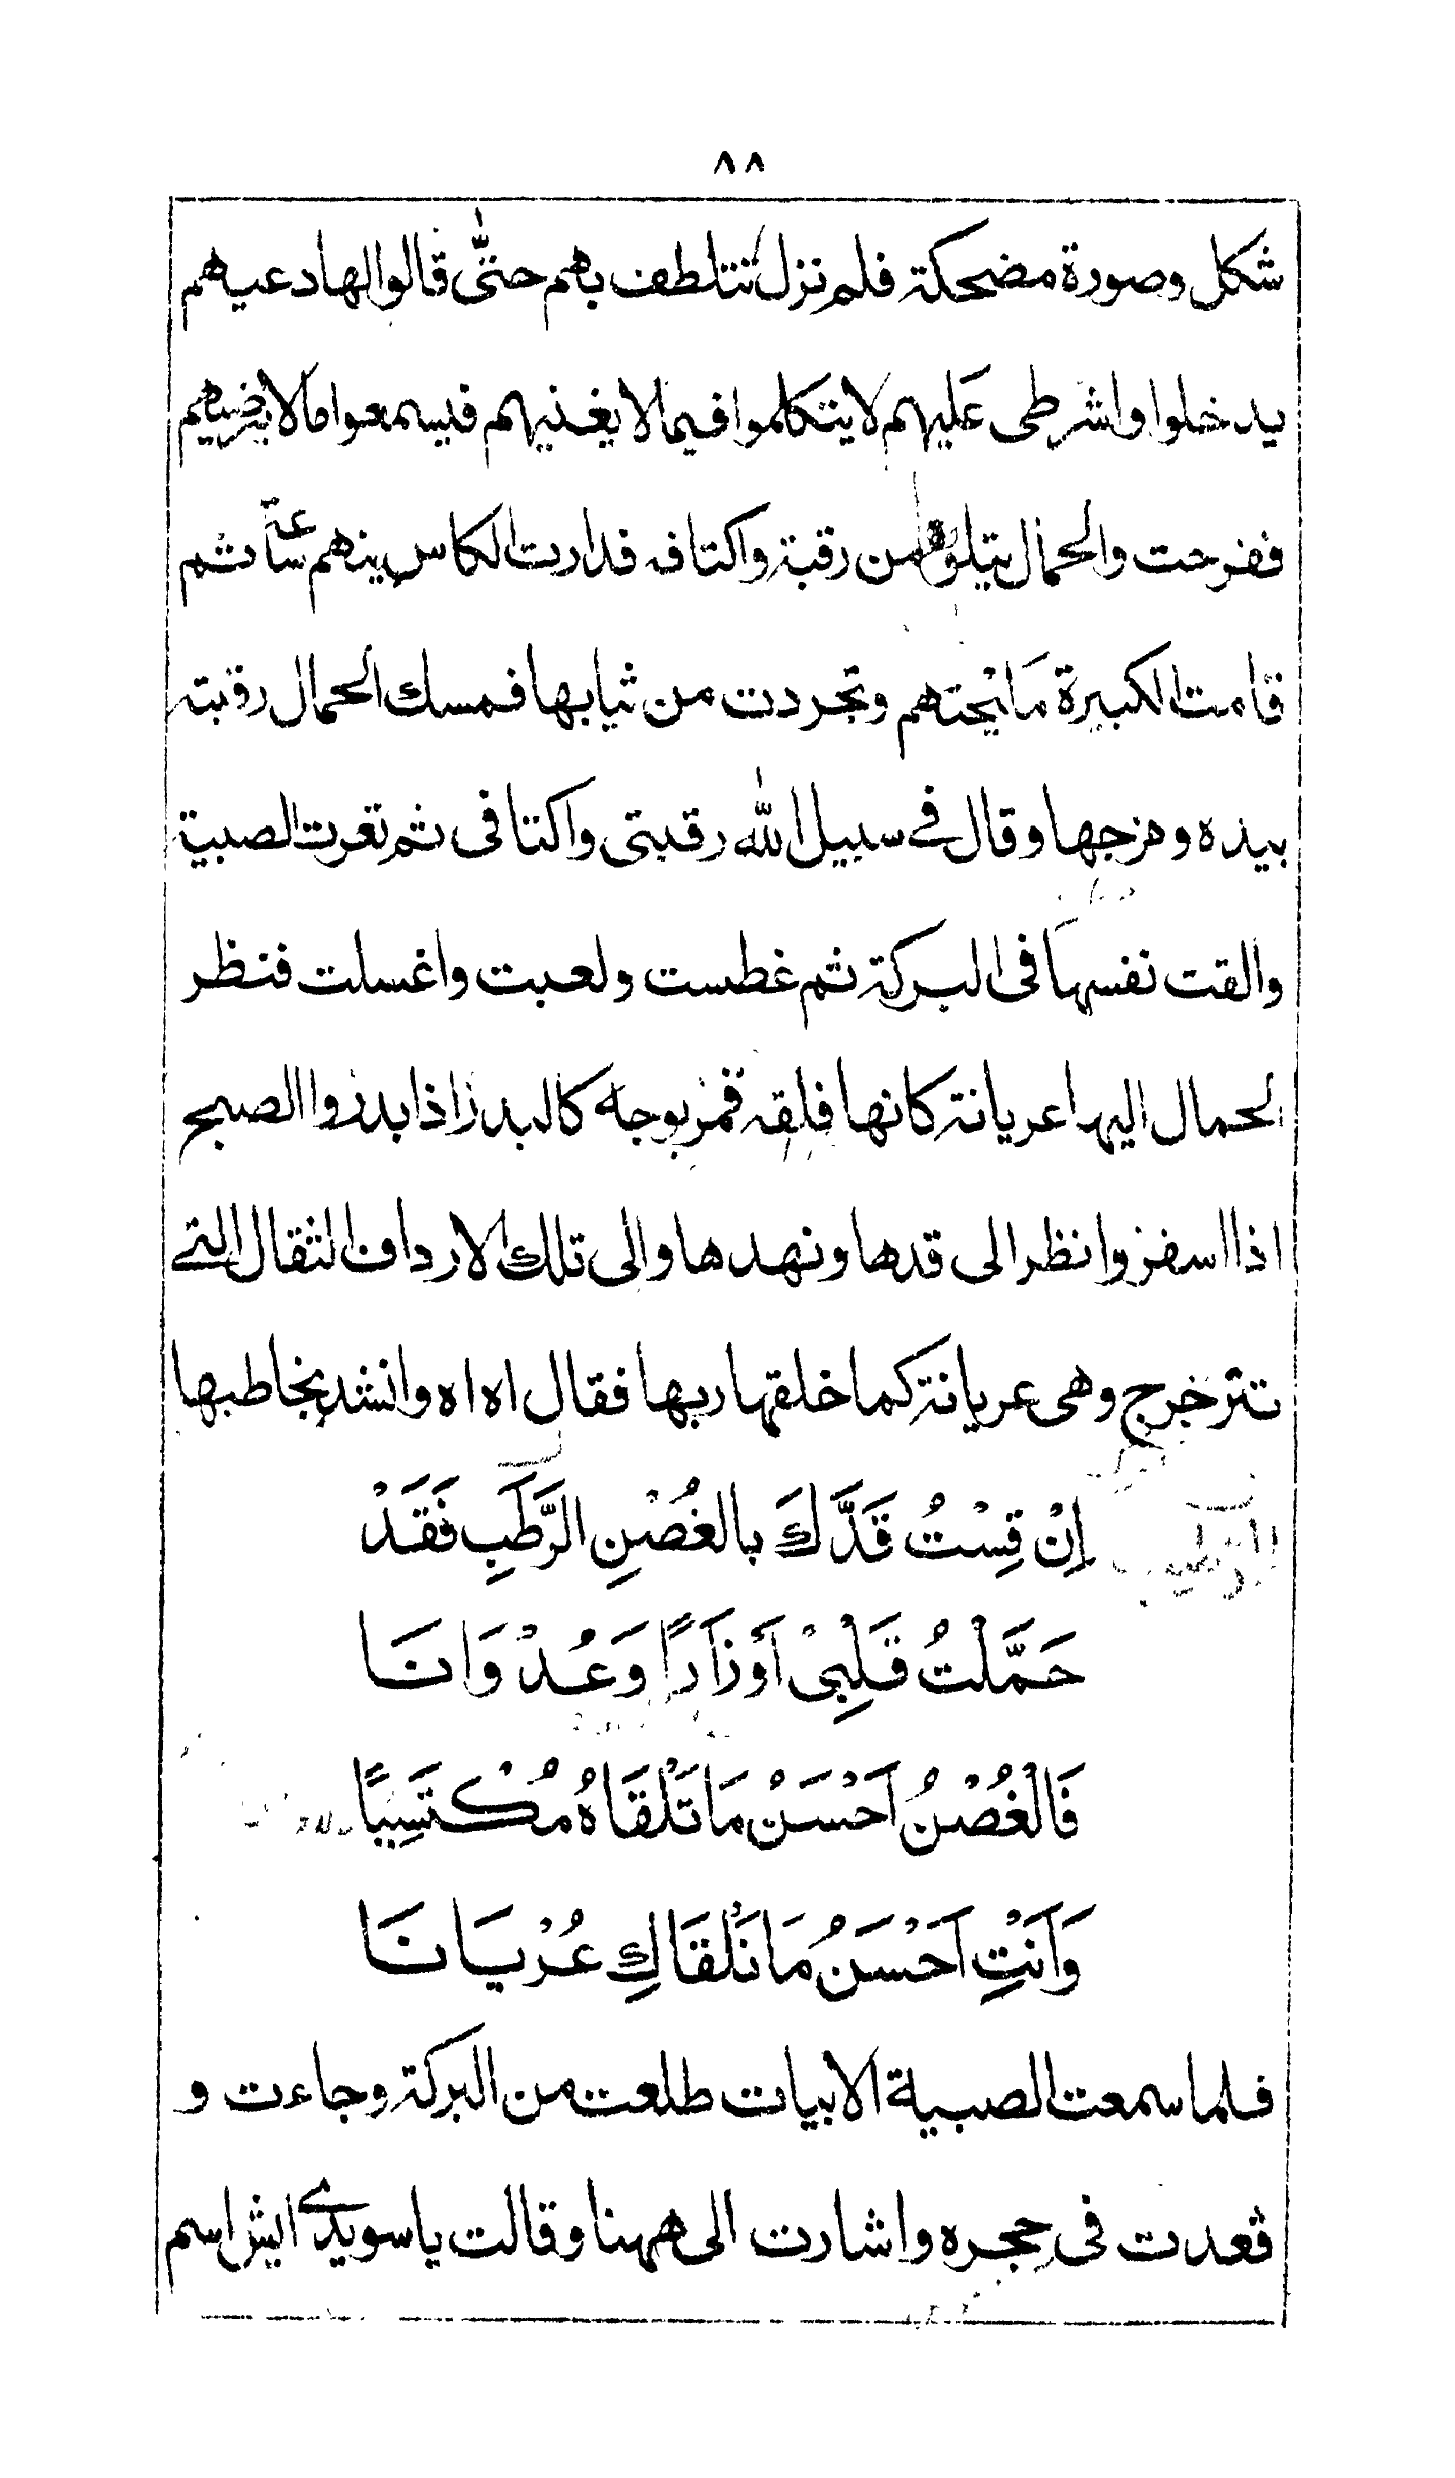 ٨٨
شكل وصورة مضحكة فلم نزل تتلطف بهم حتّى قالوا لها دعيهم
يدخلوا واشرطى عليهم لا يتكلموا فيما لا يغنيهم فيسمعوا ما لا يرضيهم
ففرحت والحمال من رقبة واكتافه فدارت الكاس بينهم ساعة ثم
قامت الكبيرة مانحتهم وتجردت من ثيابها فمسك الحمال رقبته
بيده وهزجها وقال في سبيل الله رقبتى واكتافى ثم تعرت الصبية
والقت نفسها فى البركة ثم غطست ولعبت واغسلت فنظر
لحمال اليها عريانة كانها فلقه قمر بوجه كالبدر اذا بدر والصبح
اذا اسفر وانظر الى قدها ونهدها والى تلك الارداف الثقال التے
تترخرج وهى عريانة كما خلقها ربها فقال اه اه وانشد يخاطبها
اِنْ قِسْتُ قَدَّكَ بالغُصْنِ الرَّطَبِ فَقَدْ
حَمَّلْتُ قَلِبىْ اَوْزَارًا وَعُدْوَانَا
فَالْغُصْنُ اَحْسَنُ مَا تَلْقَاهُ مُكْتَسِبًا
وَاَنْتِ اَحْسَنُ مَا نَلْقَاكِ عُرْيَانَا
فلما سمعت الصبية الابيات طلعت من البركة وجاءت و
قعدت فى حجره واشارت الى ههنا وقالت يا سويدے ايش اسم